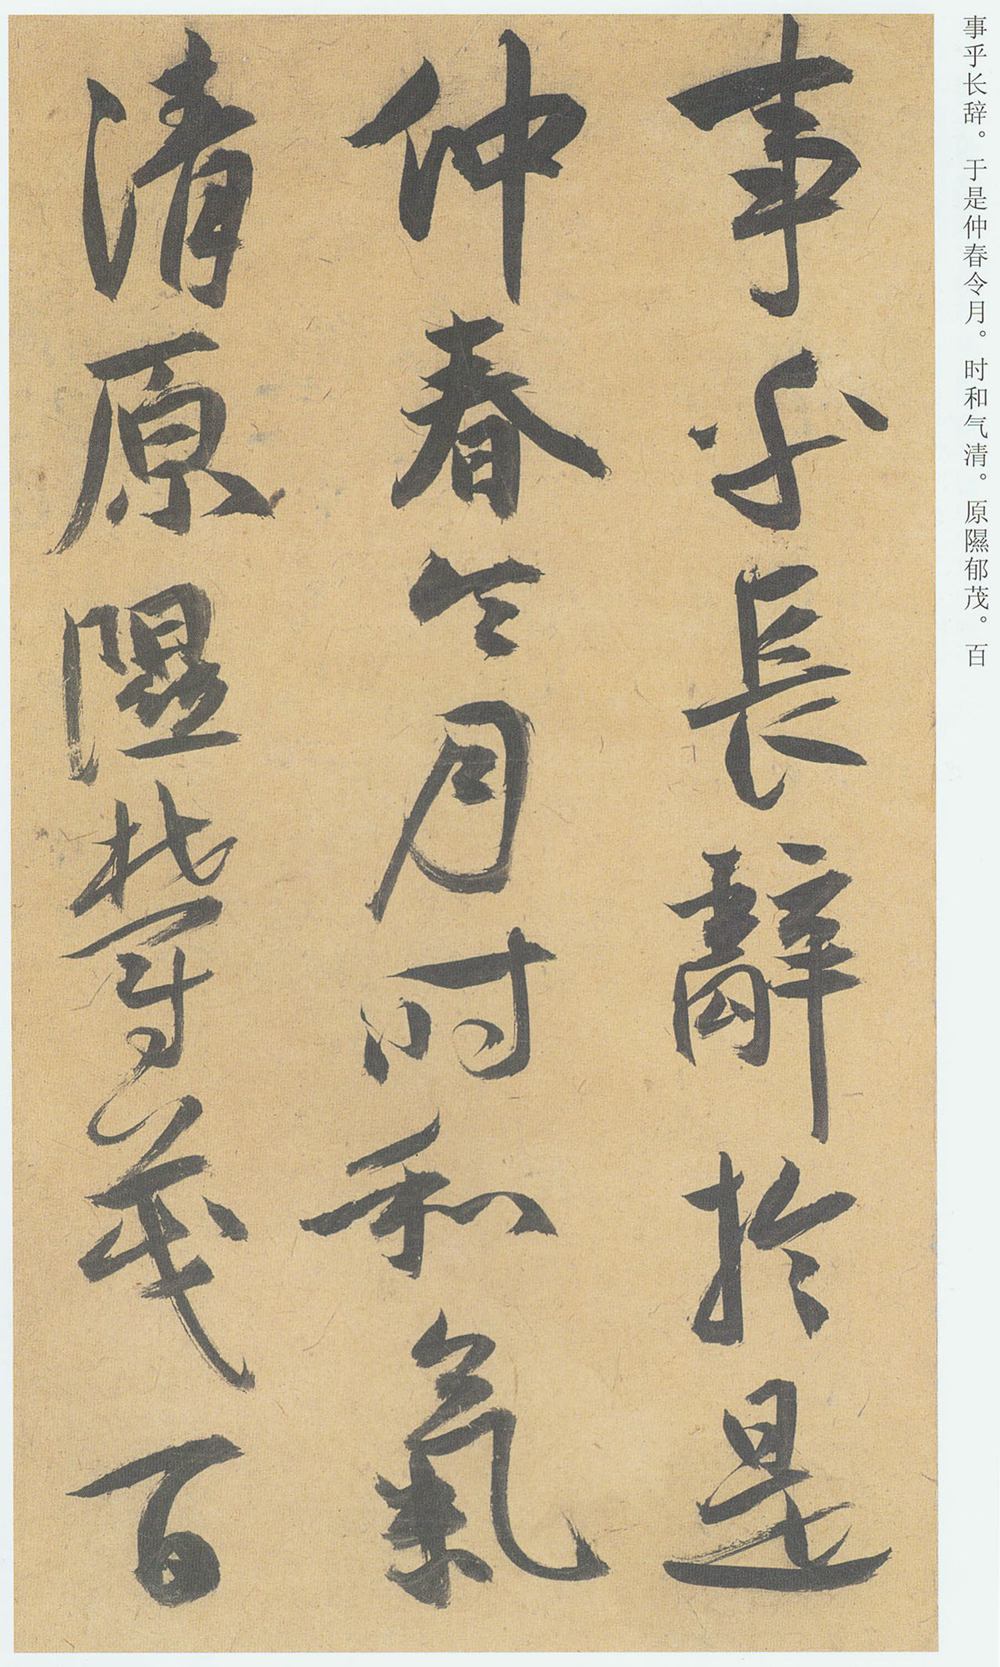 事乎长辞。于是仲春令月。时和气清。原隰郁茂。百
事乎長辭於是
仲春令月时和氣
清原隰鬱茂百